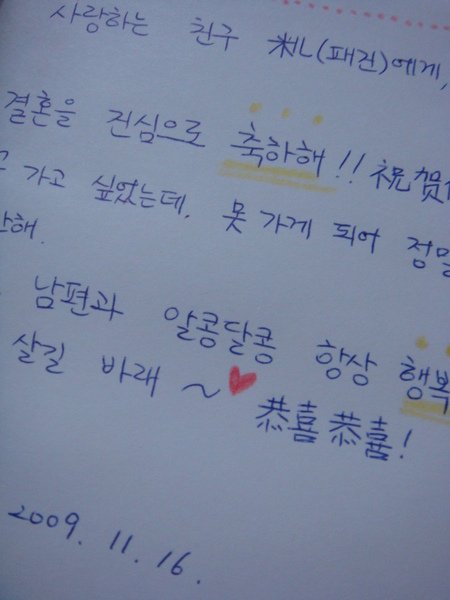 사랑하는 친구 (패건)에게,
결혼을 진심으로 축하해!! 祝贺
가고 싶었는데, 못 가게 되어 정말
해.
남편과 알콩달콩 항상 행복
살길 바래~♥
恭喜恭喜!
2009. 11. 16.